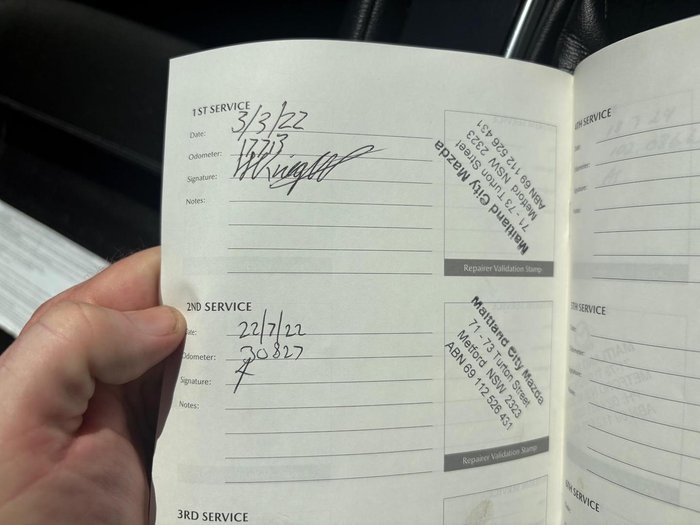 1ST SERVICE
Date: 3/3/22
Odometer: 17713
Signature:
Notes:
Maitland City Mazda
71 - 73 Turton Street
Metford NSW 2323
ABN 69 112 526 431
Repairer Validation Stamp
2ND SERVICE
Date: 22/7/22
Odometer: 30827
Signature:
Notes:
Maitland City Mazda
71 - 73 Turton Street
Metford NSW 2323
ABN 69 112 526 431
Repairer Validation Stamp
3RD SERVICE
4TH SERVICE
5TH SERVICE
6TH SERVICE